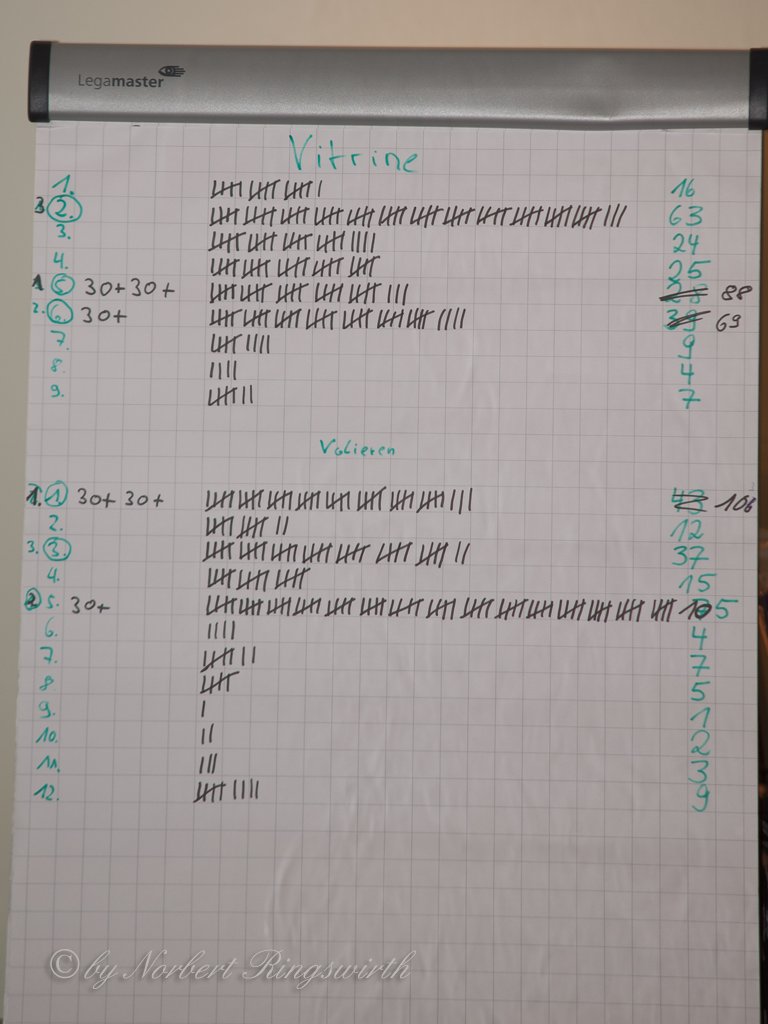 Legamaster
Vitrine
1. 16
3 2. 63
3. 24
4. 25
1 5. 30+30+ 28 88
2. 6. 30+ 39 69
7. 9
8. 4
9. 7
Volieren
1. 1. 30+ 30+ 43 106
2. 12
3. 3. 37
4. 15
2 5. 30+ 105
6. 4
7. 7
8 5
9. 1
10. 2
11. 3
12. 9
© by Norbert Ringswirth